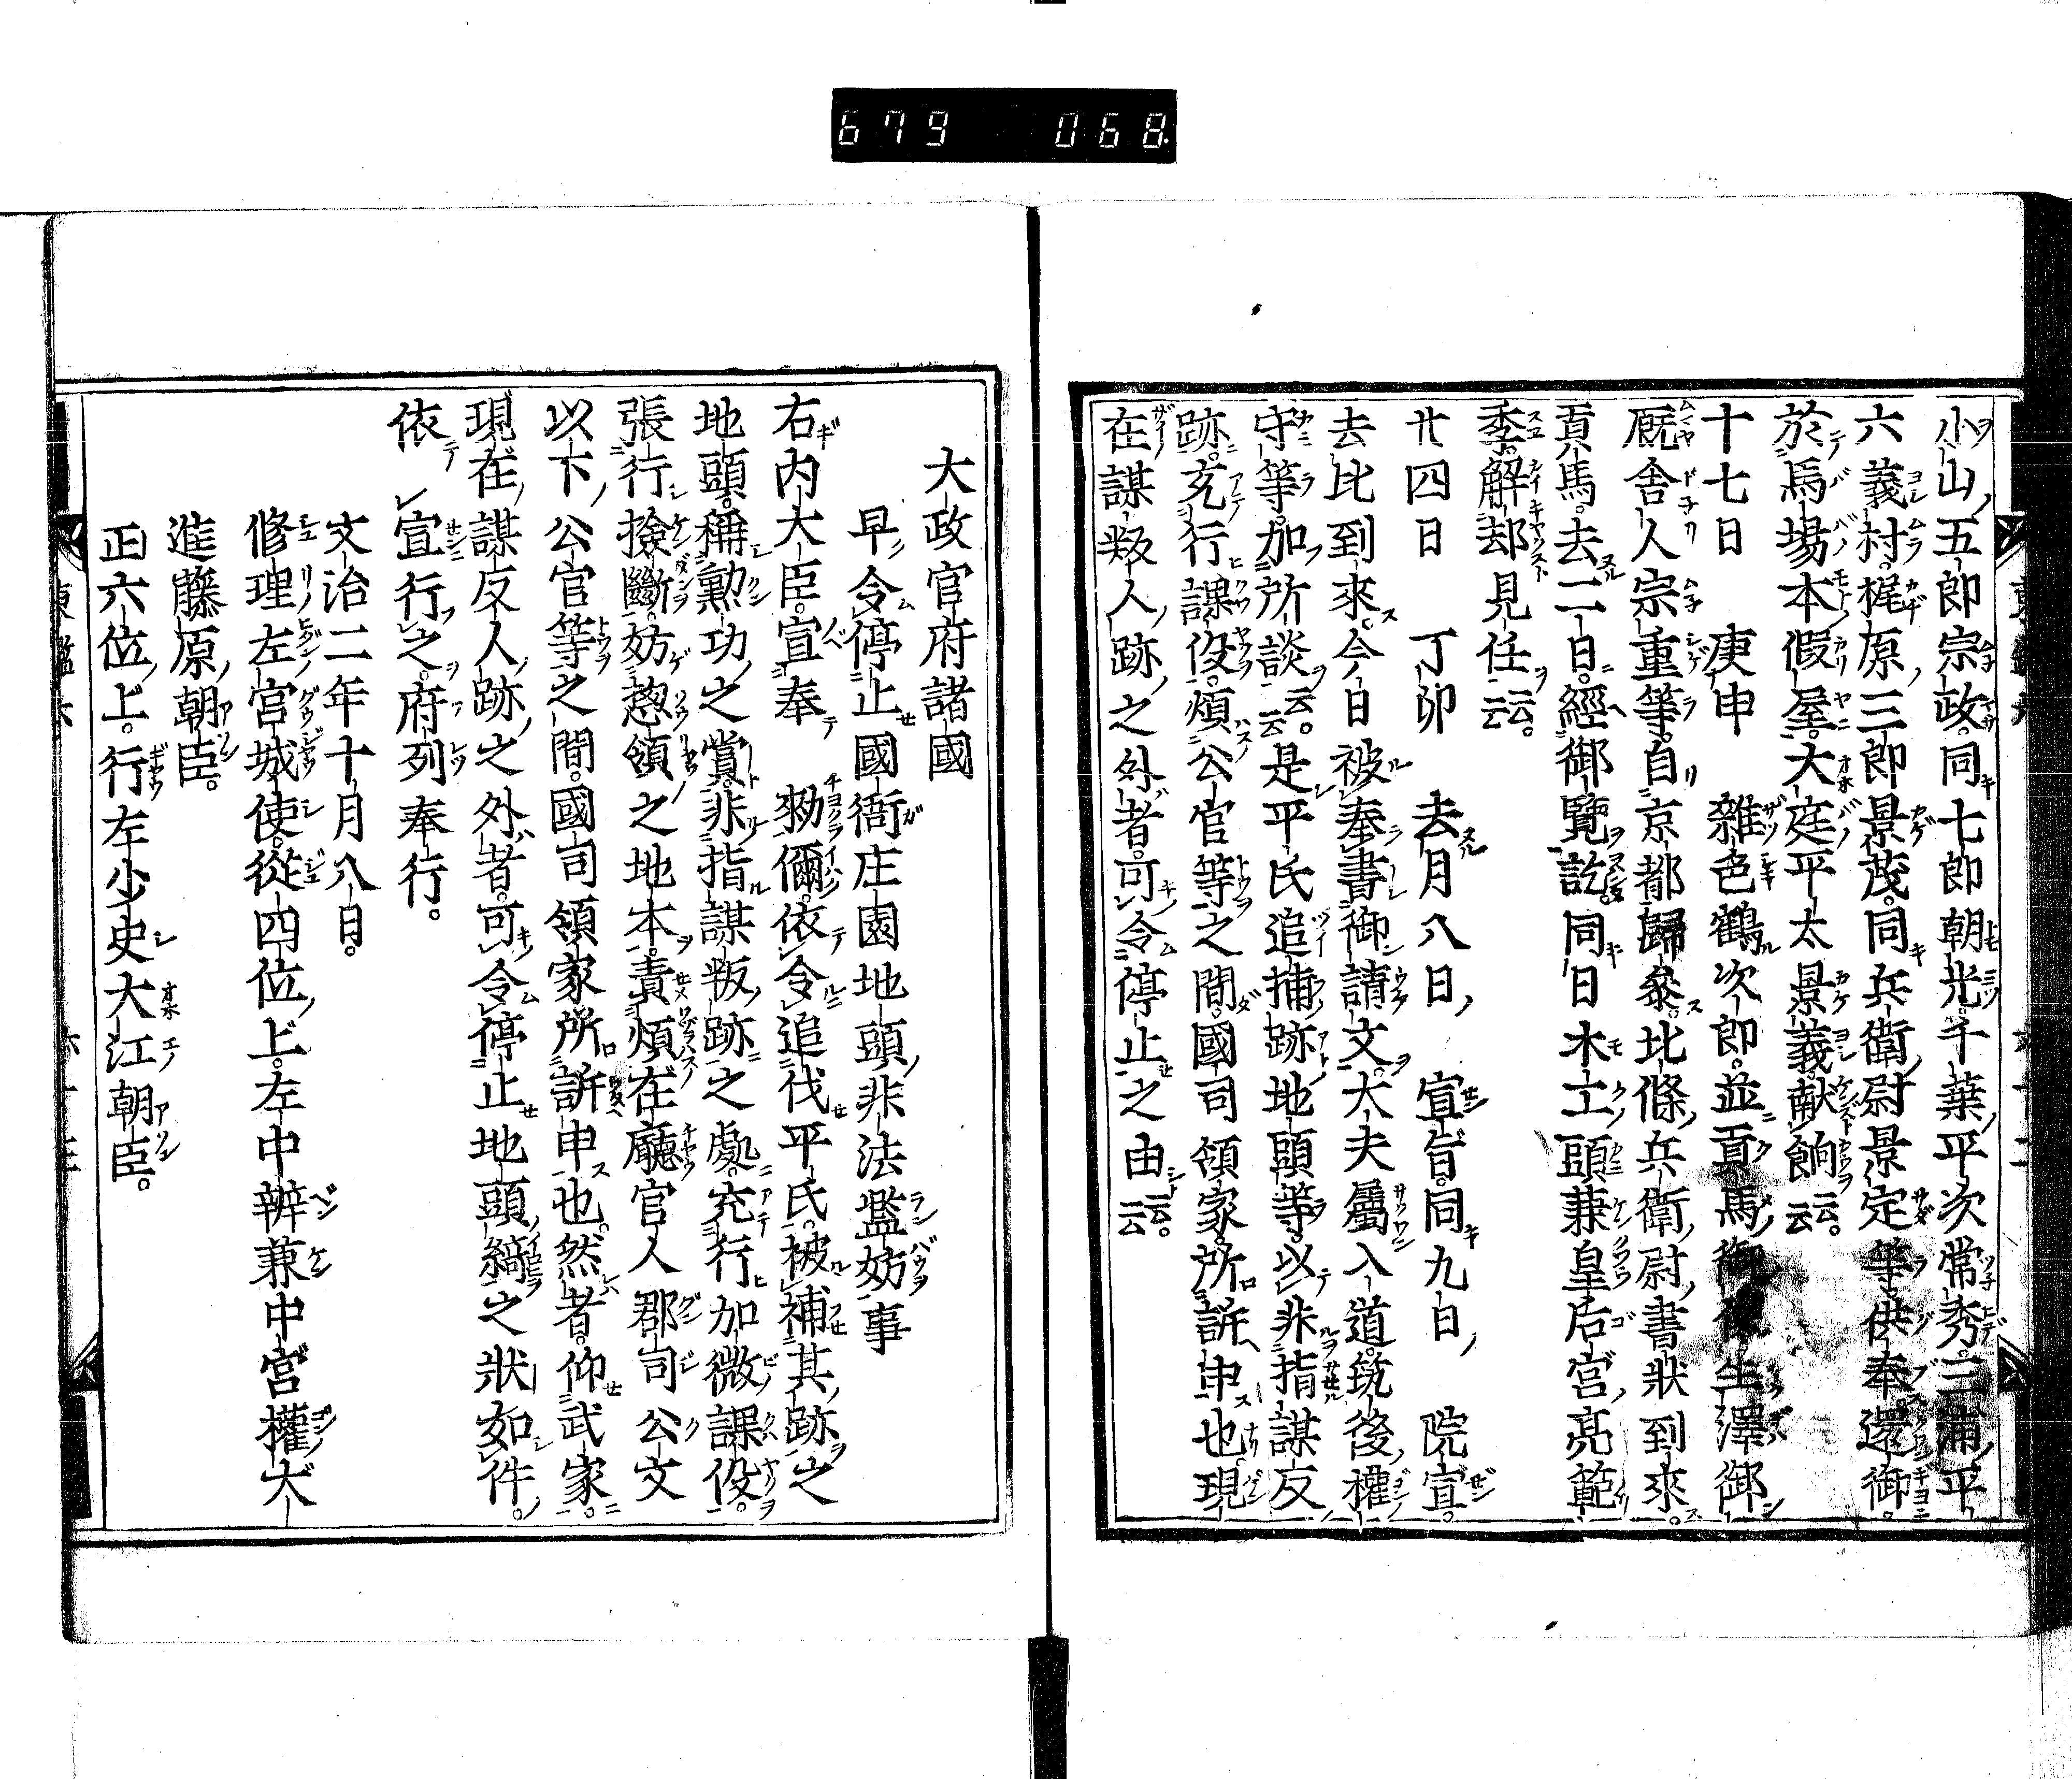 679 068
小山五郎宗政。同七郎朝光。千葉平次常秀。三浦平
六義村。梶原三郎景茂。同兵衛尉景定等供奉。還御。
於馬場本假屋。大庭平太景義献餉云云。
十七日 庚申 雜色鶴次郎。並貢馬御
生澤御
厩舍人宗重等。自京都歸參。北條兵衛尉書狀到來。
貢馬。去二日。經御覽訖。同日木工頭兼皇后宮亮範
季。解却見任云云。
廿四日 丁卯 去月八日、宣旨。同九日、院宣。
去比到來。今日被奉書御請文。大夫屬入道。筑後權
守等。加所談云云。是平氏追捕跡地頭等。以非指謀反
跡。充行課役。煩公官等之間。國司領家。所訴申也。現
在謀叛人跡之外者。可令停止之由云云。
大政官府諸國
早令停止國衙庄園地頭非法濫妨事
右内大臣。宣奉 勑儞。依令追伐平氏。被補其跡之
地頭。稱勲功之賞。非指謀叛跡之處。充行加徴課役。
張行撿斷。妨惣領之地本。責煩在廳官人郡司公文
以下公官等之間。國司領家所訴申也。然者。仰武家。
現在謀反人跡之外者。可令停止地頭綺之狀如件。
依 宣行之。府列奉行。
文治二年十月八日。
修理左宮城使。從四位上。左中辨兼中宮權大
進藤原朝臣。
正六位上。行左少史大江朝臣。